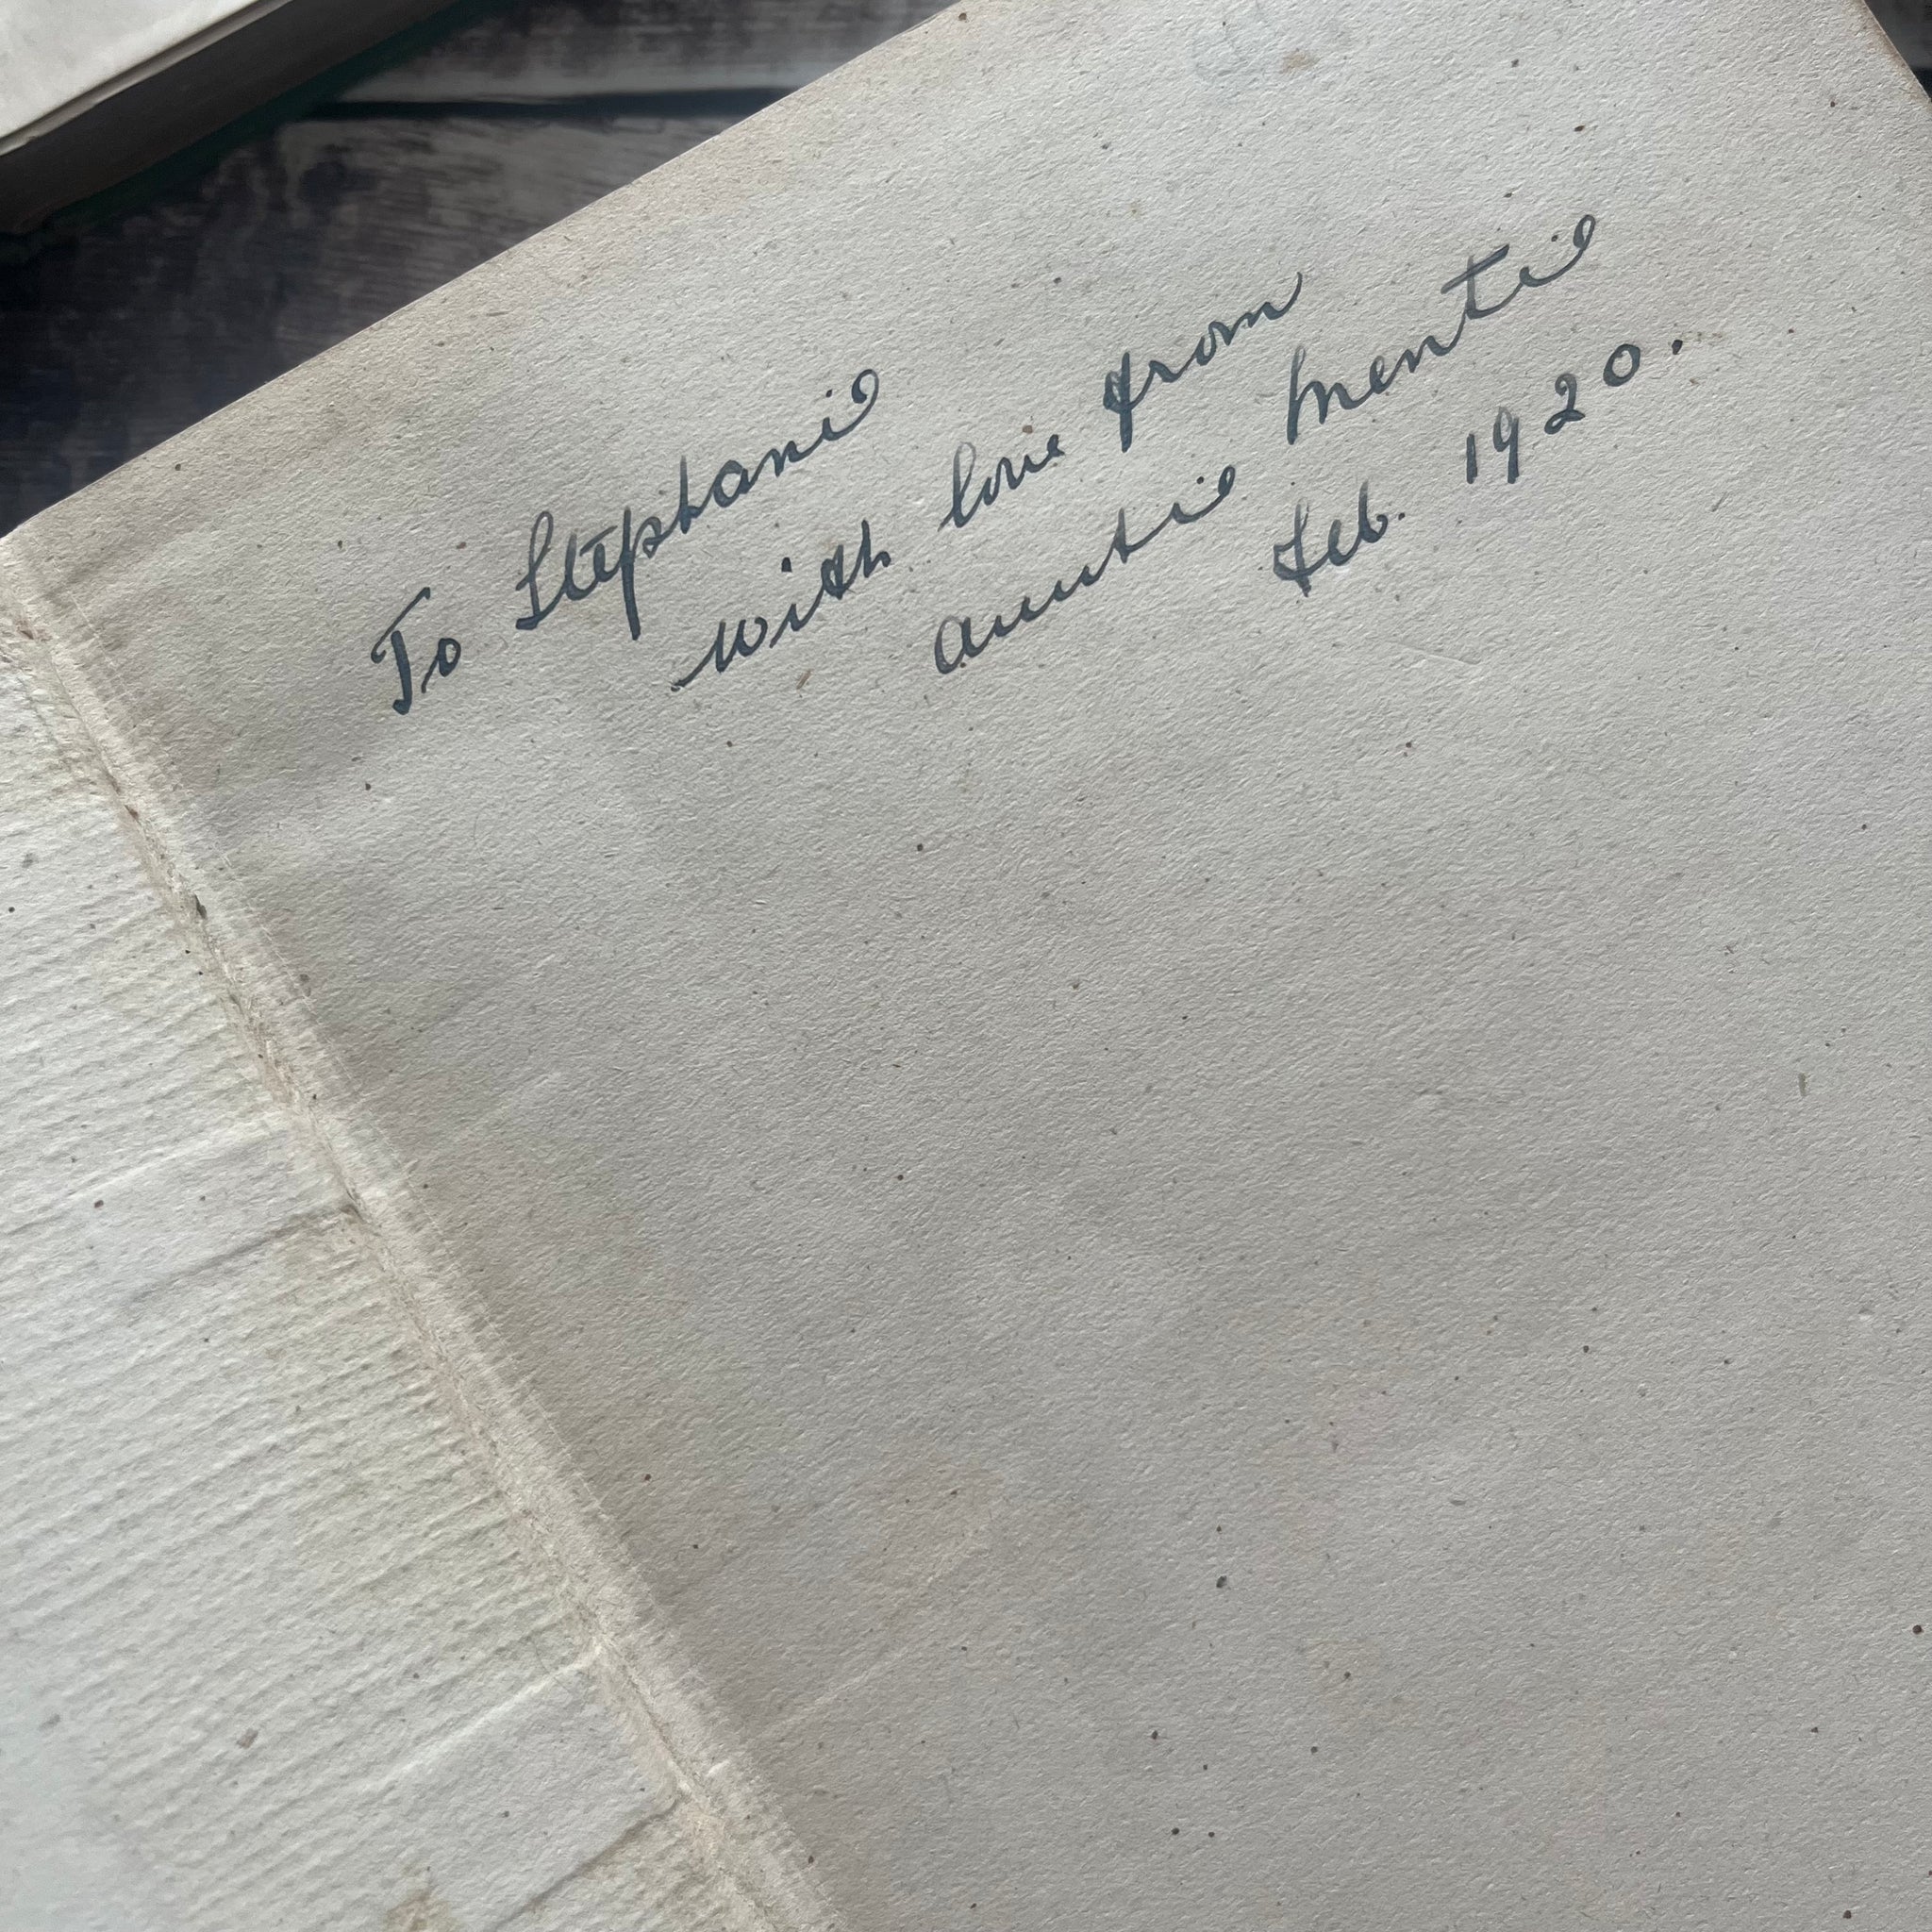 To Stephanie
with love from
Auntie Mentie
Feb. 1920.